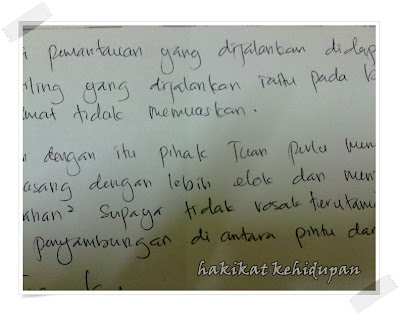 pemantauan yang dijalankan didap
iling yang dijalankan iaitu pada k
mat tidak memuaskan.
dengan itu pihak Tuan perlu men
asang dengan lebih elok dan men
ahan² supaya tidak rosak terutam
penyambungan di antara pintu dan
hakikat kehidupan